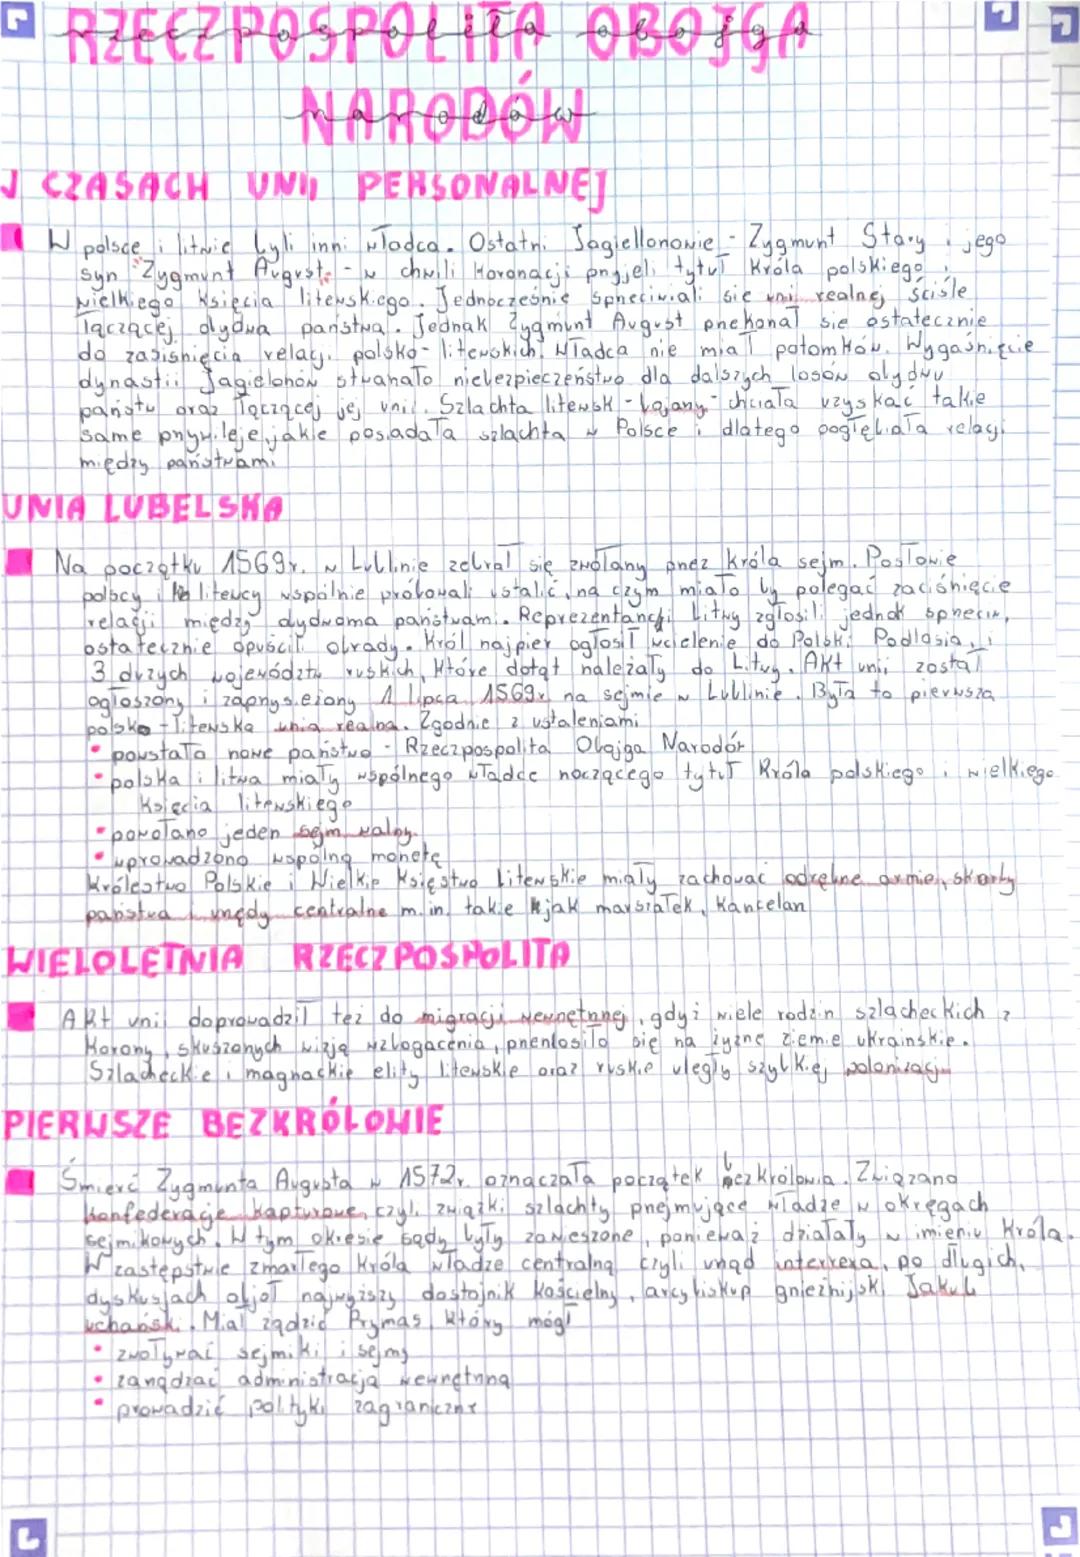 RZECZPOSPOLITA OBOJGA
NARODÓW
W CZASACH UNII PERSONALNEJ
W polsce i litwie byli inni władca. Ostatni Jagiellonowie - Zygmunt Stary i jego
syn Zygmynt August - w chwili koronacji przyjeli tytuł króla polskiego i
wielkiego księcia litewskiego. Jednocześnie sprzeciwiali się unii realnej ściśle
łączącej oby dwa państwa. Jednak Zygmunt August przekonał się ostatecznie
do zaciśnięcia relacji polsko-litewskich. Władca nie miał potomków. Wygaśnięcie
dynastii Jagielonów stwarzało niebezpieczeństwo dla dalszych losów obydwu
państw oraz łączącej jej unii. Szlachta litewsk - bojarzy - chciała uzyskać takie
same przywileje, jakie posiadała szlachta w Polsce i dlatego pogłębiała relacji
między państwami
UNIA LUBELSKA
Na początku 1569r. w Lublinie zebrał się zwołany przez króla sejm. Posłowie
polscy i litewcy wspólnie próbowali ustalić, na czym miało by polegać zaciśnięcie
relacji między dydwoma państwami. Reprezentanci Litwy zgłosili jednak sprzeciw,
ostatecznie opuścili obrady. Król najpier ogłosił wcielenie do Polski Podlasia, i
3 duzych województw ruskich, które dotąt należały do Litwy. Akt unii został
ogłoszony i zaprzysiężony 1 lipca 1569r na sejmie w Lublinie. Była to pierwsza
polsko-litewska unia realna. Zgodnie z ustaleniami
• powstało nowe państwo - Rzeczpospolita Obojga Narodór
• polska i litwa miały wspólnego władce noczącego tytuł króla polskiego i wielkiego
księcia litewskiego
• powołano jeden sejm walny.
• wprowadzono wspólną monetę
Królestwo Polskie i Wielkie Księstwo Litewskie miały zachować odrębne armie, skarby
państwa i urzędy centralne m.in. takie jak marszałek, kanclerz
WIELOLETNIA RZECZPOSPOLITA
Akt unii doprowadził też do migracji wewnętrznej, gdyż wiele rodzin szlacheckich z
Korony, skuszonych wizją wzbogacenia, przeniosiło się na żyzne ziemie ukrainskie.
Szlacheckie i magnackie elity litewskie oraz ruskie uległy szybkiej polonizacji
PIERWSZE BEZKRÓLOWIE
Śmierć Zygmunta Augusta w 1572r. oznaczała początek bezkrólowia. Związano
konfederacje kapturowe, czyli związki szlachty przejmujące władze w okręgach
sejmikowych. W tym okresie sądy były zawieszone, ponieważ działały w imieniu króla.
W zastępstwie zmarłego króla władze centralną czyli urząd interrexa, po długich,
dyskusjach objął najwyższy dostojnik kościelny, arcybiskup gnieźnijski Jakub
uchański. Miał ządzić Prymas, który mógł
• zwoływać sejmiki i sejmy
• zarządzać administracją wewnętrzną
• prowadzić polityki zagraniczne